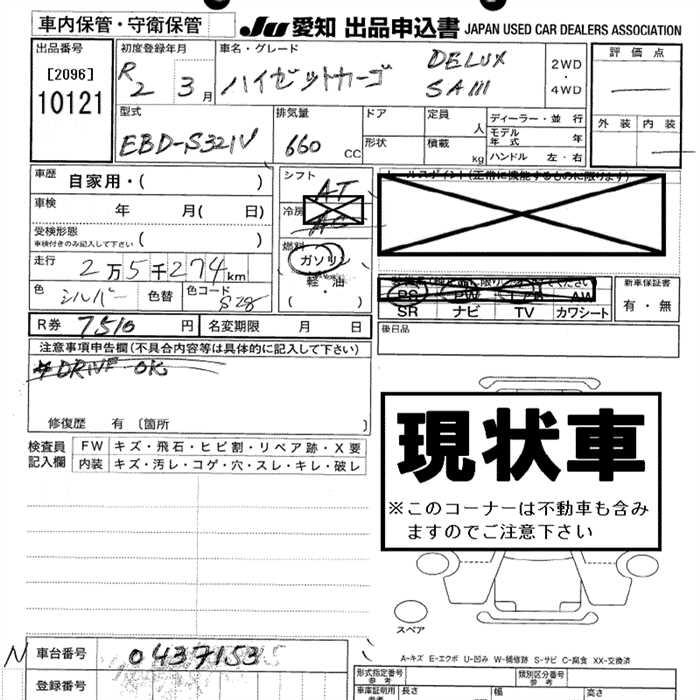 車内保管・守衛保管
JU 愛知 出品申込書 JAPAN USED CAR DEALERS ASSOCIATION
出品番号
[2096]
10121
初度登録年月
R2 3月
車名・グレード
ハイゼットカーゴ DELUX SAIII
2WD
・
4WD
評価点
外装 内装
型式
EBD-S321V
排気量
660 CC
ドア
形状
定員 人
積載 kg
ディーラー・並行
モデル年式 年
ハンドル 左・右
車歴 自家用・( )
車検 年 月( 日)
受検形態
車検付きのみ記入して下さい ( )
走行 2万5千274km
色 シルバー 色替 色コード S28
R券 7510円 名変期限 月 日
シフト AT
冷房 AC
燃料 ガソリン
軽・油
セールスポイント(正常に機能するものに限ります)
PS PW AW
SR ナビ TV カワシート
新車保証書
有・無
後日品
注意事項申告欄(不具合内容等は具体的に記入して下さい)
DRIVE OK
修復歴 有 〔箇所 〕
検査員記入欄
FW キズ・飛石・ヒビ割・リペア跡・X要
内装 キズ・汚レ・コゲ・穴・スレ・キレ・破レ
現状車
※このコーナーは不動車も含み
ますのでご注意下さい
スペア
A-キズ E-エクボ U-凹み W-補修跡 S-サビ C-腐食 XX-交換済
N 車台番号 0437153
登録番号
型式指定番号
参考
類別区分番号
参考
車庫証明用
参考
長さ 幅 高さ